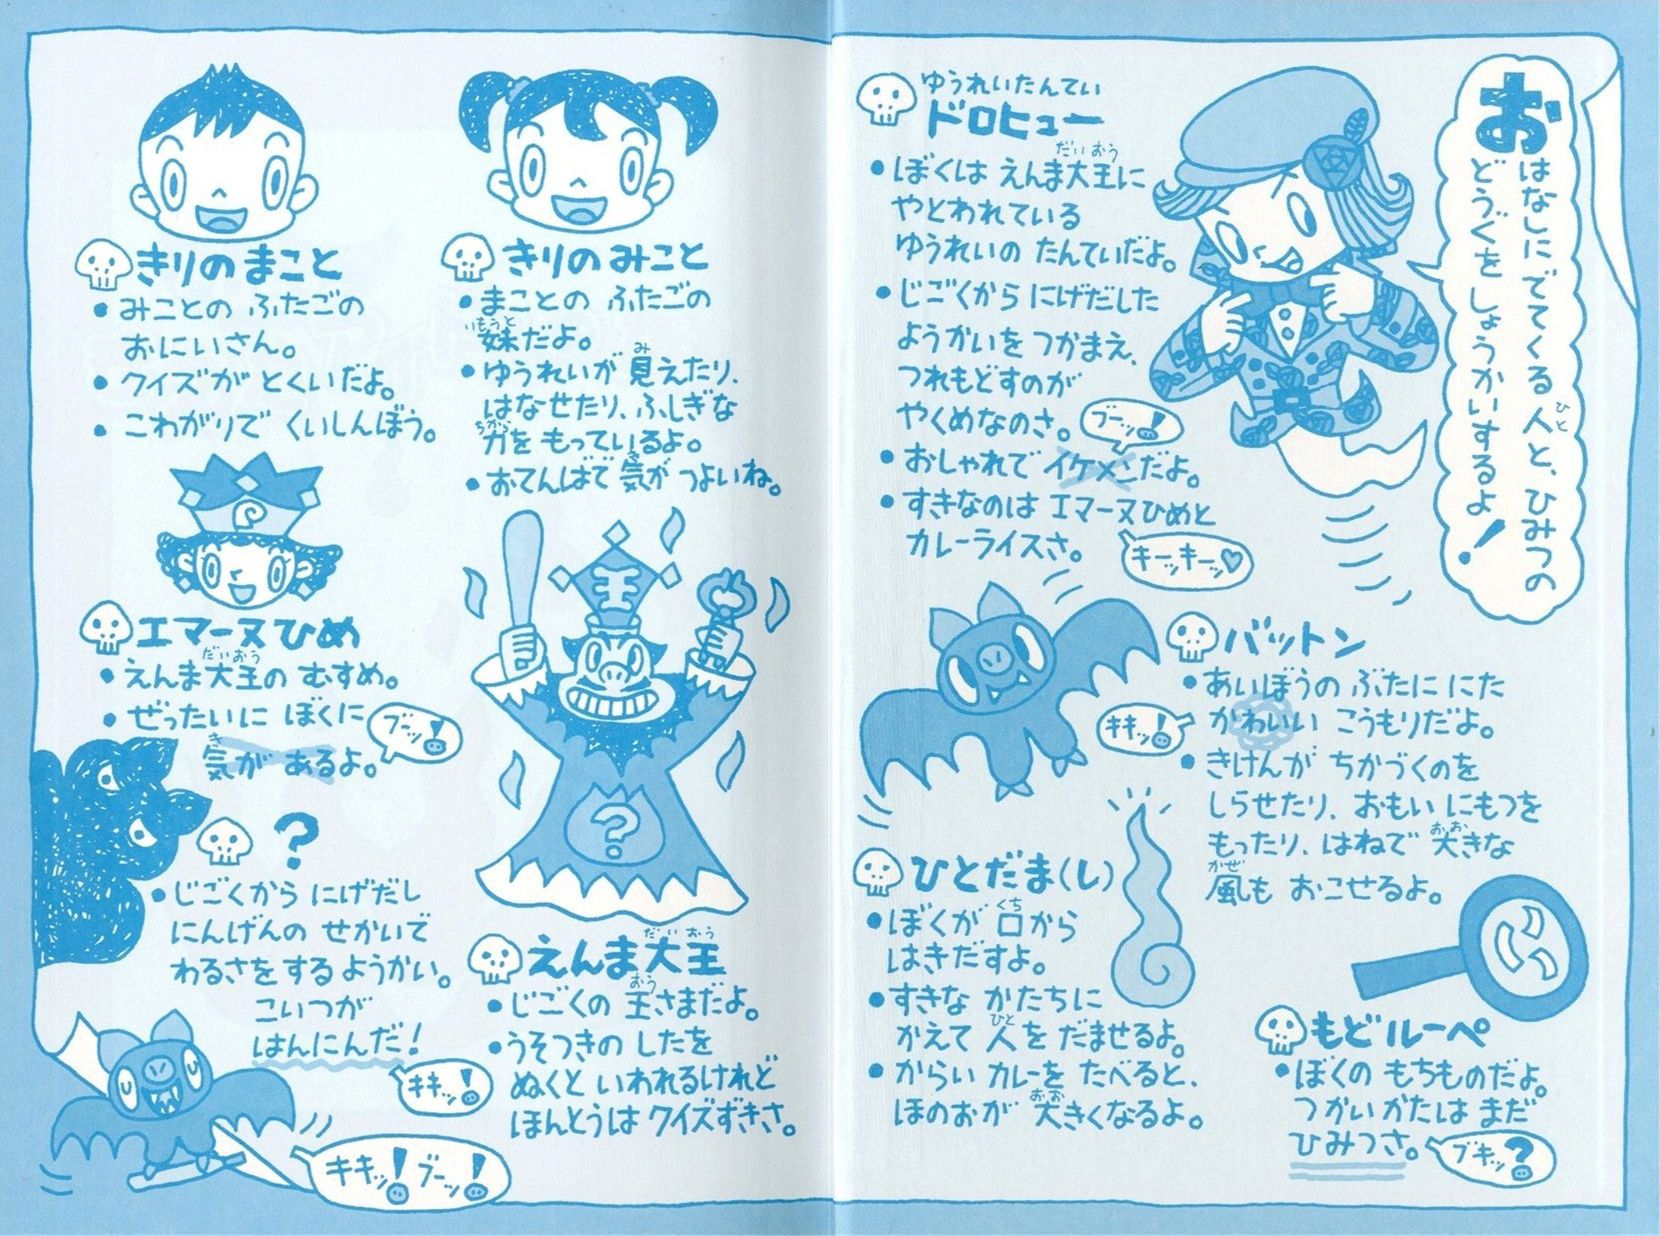 おはなしにでてくる人と、ひみつの
どうぐをしょうかいするよ!
ゆうれいたんてい
ドロヒュー
・ぼくは えんま大王に
やとわれている
ゆうれいの たんていだよ。
・じごくから にげだした
ようかいを つかまえ、
つれもどすのが
やくめなのさ。
ブーッ!
・おしゃれで イケメンだよ。
・すきなのは エマーヌひめと
カレーライスさ。
キーッキーッ♡
バットン
・あいぼうの ぶたに にた
かわいい こうもりだよ。
キキッ!
・きけんが ちかづくのを
しらせたり、おもい にもつを
もったり、はねで 大きな
風も おこせるよ。
ひとだま(し)
・ぼくが 口から
はきだすよ。
・すきな かたちに
かえて 人を だませるよ。
・からい カレーを たべると、
ほのおが 大きくなるよ。
もどルーペ
・ぼくの もちものだよ。
つかいかたは まだ
ひみつさ。
ブキッ?
きりの みこと
・まことの ふたごの
妹だよ。
・ゆうれいが 見えたり、
はなせたり、ふしぎな
力を もっているよ。
・おてんばで 気が つよいね。
きりの まこと
・みことの ふたごの
おにいさん。
・クイズが とくいだよ。
・こわがりで くいしんぼう。
王
?
えんま大王
・じごくの 王さまだよ。
・うそつきの したを
ぬくと いわれるけれど
ほんとうは クイズずきさ。
エマーヌひめ
・えんま大王の むすめ。
・ぜったいに ぼくに
気が あるよ。
ブーッ!
?
・じごくから にげだし
にんげんの せかいで
わるさを する ようかい。
こいつが
はんにんだ!
キキッ!
キキッ!ブーッ!